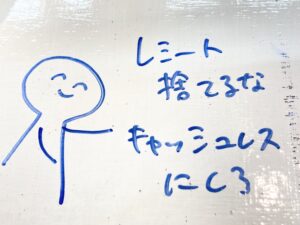 レシート
捨てるな
キャッシュレス
にしろ